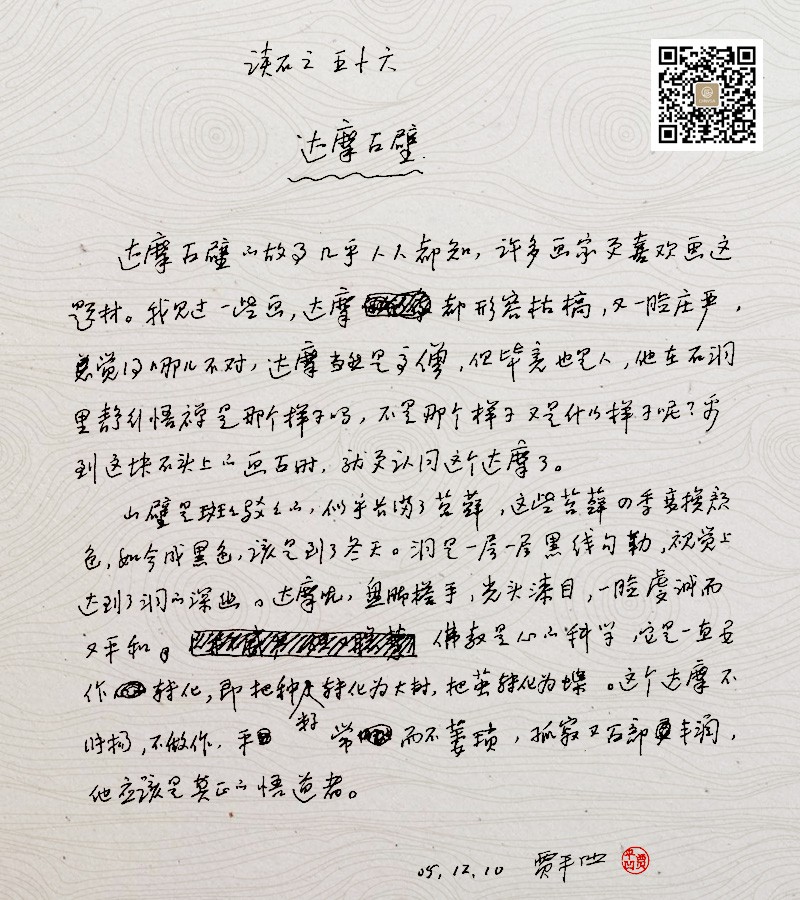 读石之五十六
达摩石壁
达摩石壁的故事几乎人人都知，许多画家更喜欢画这
题材。我见过一些画，达摩都形容枯槁，又一脸庄严，
总觉得哪儿不对，达摩当然是高僧，但毕竟也是人，他在石洞
里静修悟禅是那个样子吗，不是那个样子又是什么样子呢？看
到这块石头上的画石时，就更认同这个达摩了。
山壁是斑驳的，似乎长满了苔藓，这些苔藓四季变换颜
色，如今成黑色，该是到了冬天。洞是一层一层黑线勾勒，视觉上
达到了洞的深幽。达摩呢，盘脚搭手，光头漆目，一脸虔诚而
又平和。佛教是心的科学，它是一直在
作转化，即把种籽转化为大树，把茧转化为蝶。这个达摩不
张扬，不做作，平常而不萎琐，孤寂又面部丰润，
他应该是真正的悟道者。
05.12.10 贾平凹